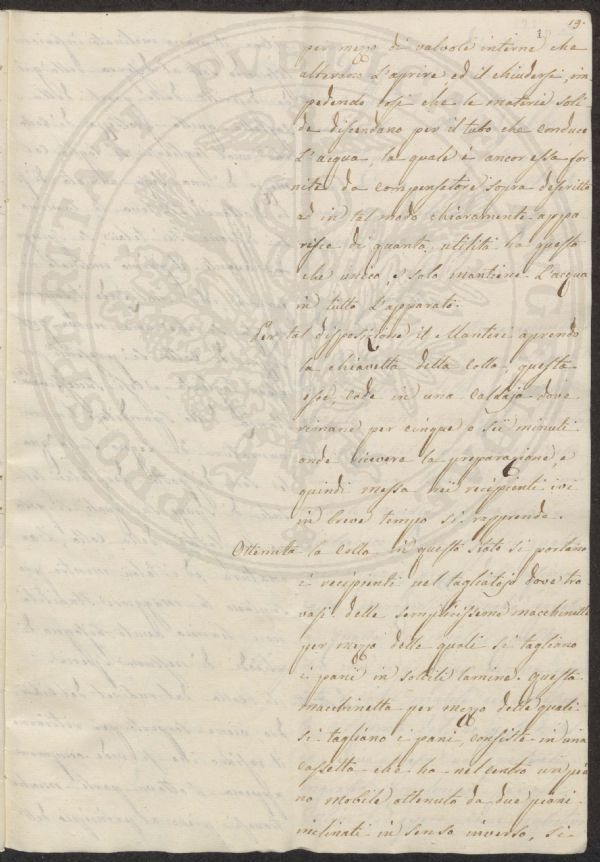 19.
1
per mezzo di valvole interne che
alterano l'aprire ed il chiudersi im
pedendo così che le materie soli
de discendano per il tubo che conduce
l'acqua, la quale è ancor essa for
nita da compensatore sopra descritto
ed in tal modo chiaramente appa
risce di quanta utilità ha questo
che unico, e solo mantiene l'acqua
in tutto l'apparato.
Per tal disposizione il Mantici aprendo
la chiavetta della colla, questa
esce, cade in una caldaja dove
rimane per cinque o sii minuti
onde ricevere la preparazione, e
quindi messa nei recipienti ivi
in breve tempo si rapprende.
Ottenuta la colla in questo stato si portano
i recipienti nel tagliatojo dove tro
vasi delle semplicissime macchinette
per mezzo delle quali si tagliano
i pani in sottili lamine. Questa
macchinetta per mezzo delle quali
si tagliano i pani, consiste in una
cassetta che ha nel centro un pia
no mobile ottenuto da due piani
inclinati in senso inverso, si
PROSPERITAT PUBLICAE AUGENDAE